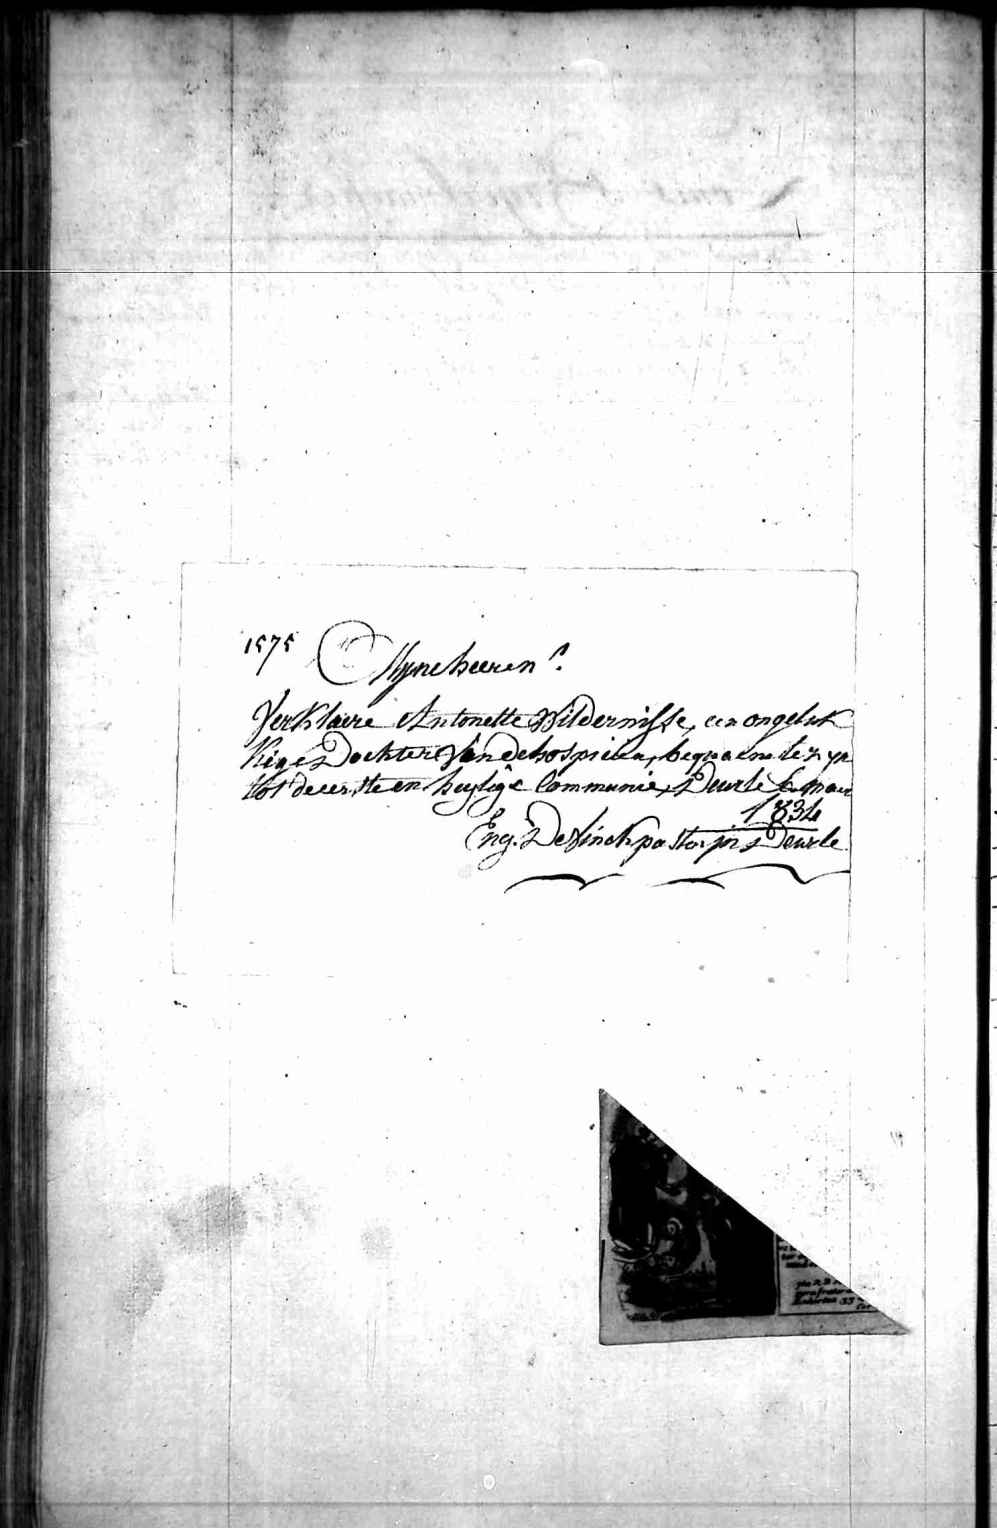 1575 Myne heeren
Verklaere Antonette Wildernisse, een ongeluk
kige Dochter van de hospicien, bequaem te zyn
tot de eerste en heylige Communie, Deurle
1834
Eng. De Vinck pastor in Deurle